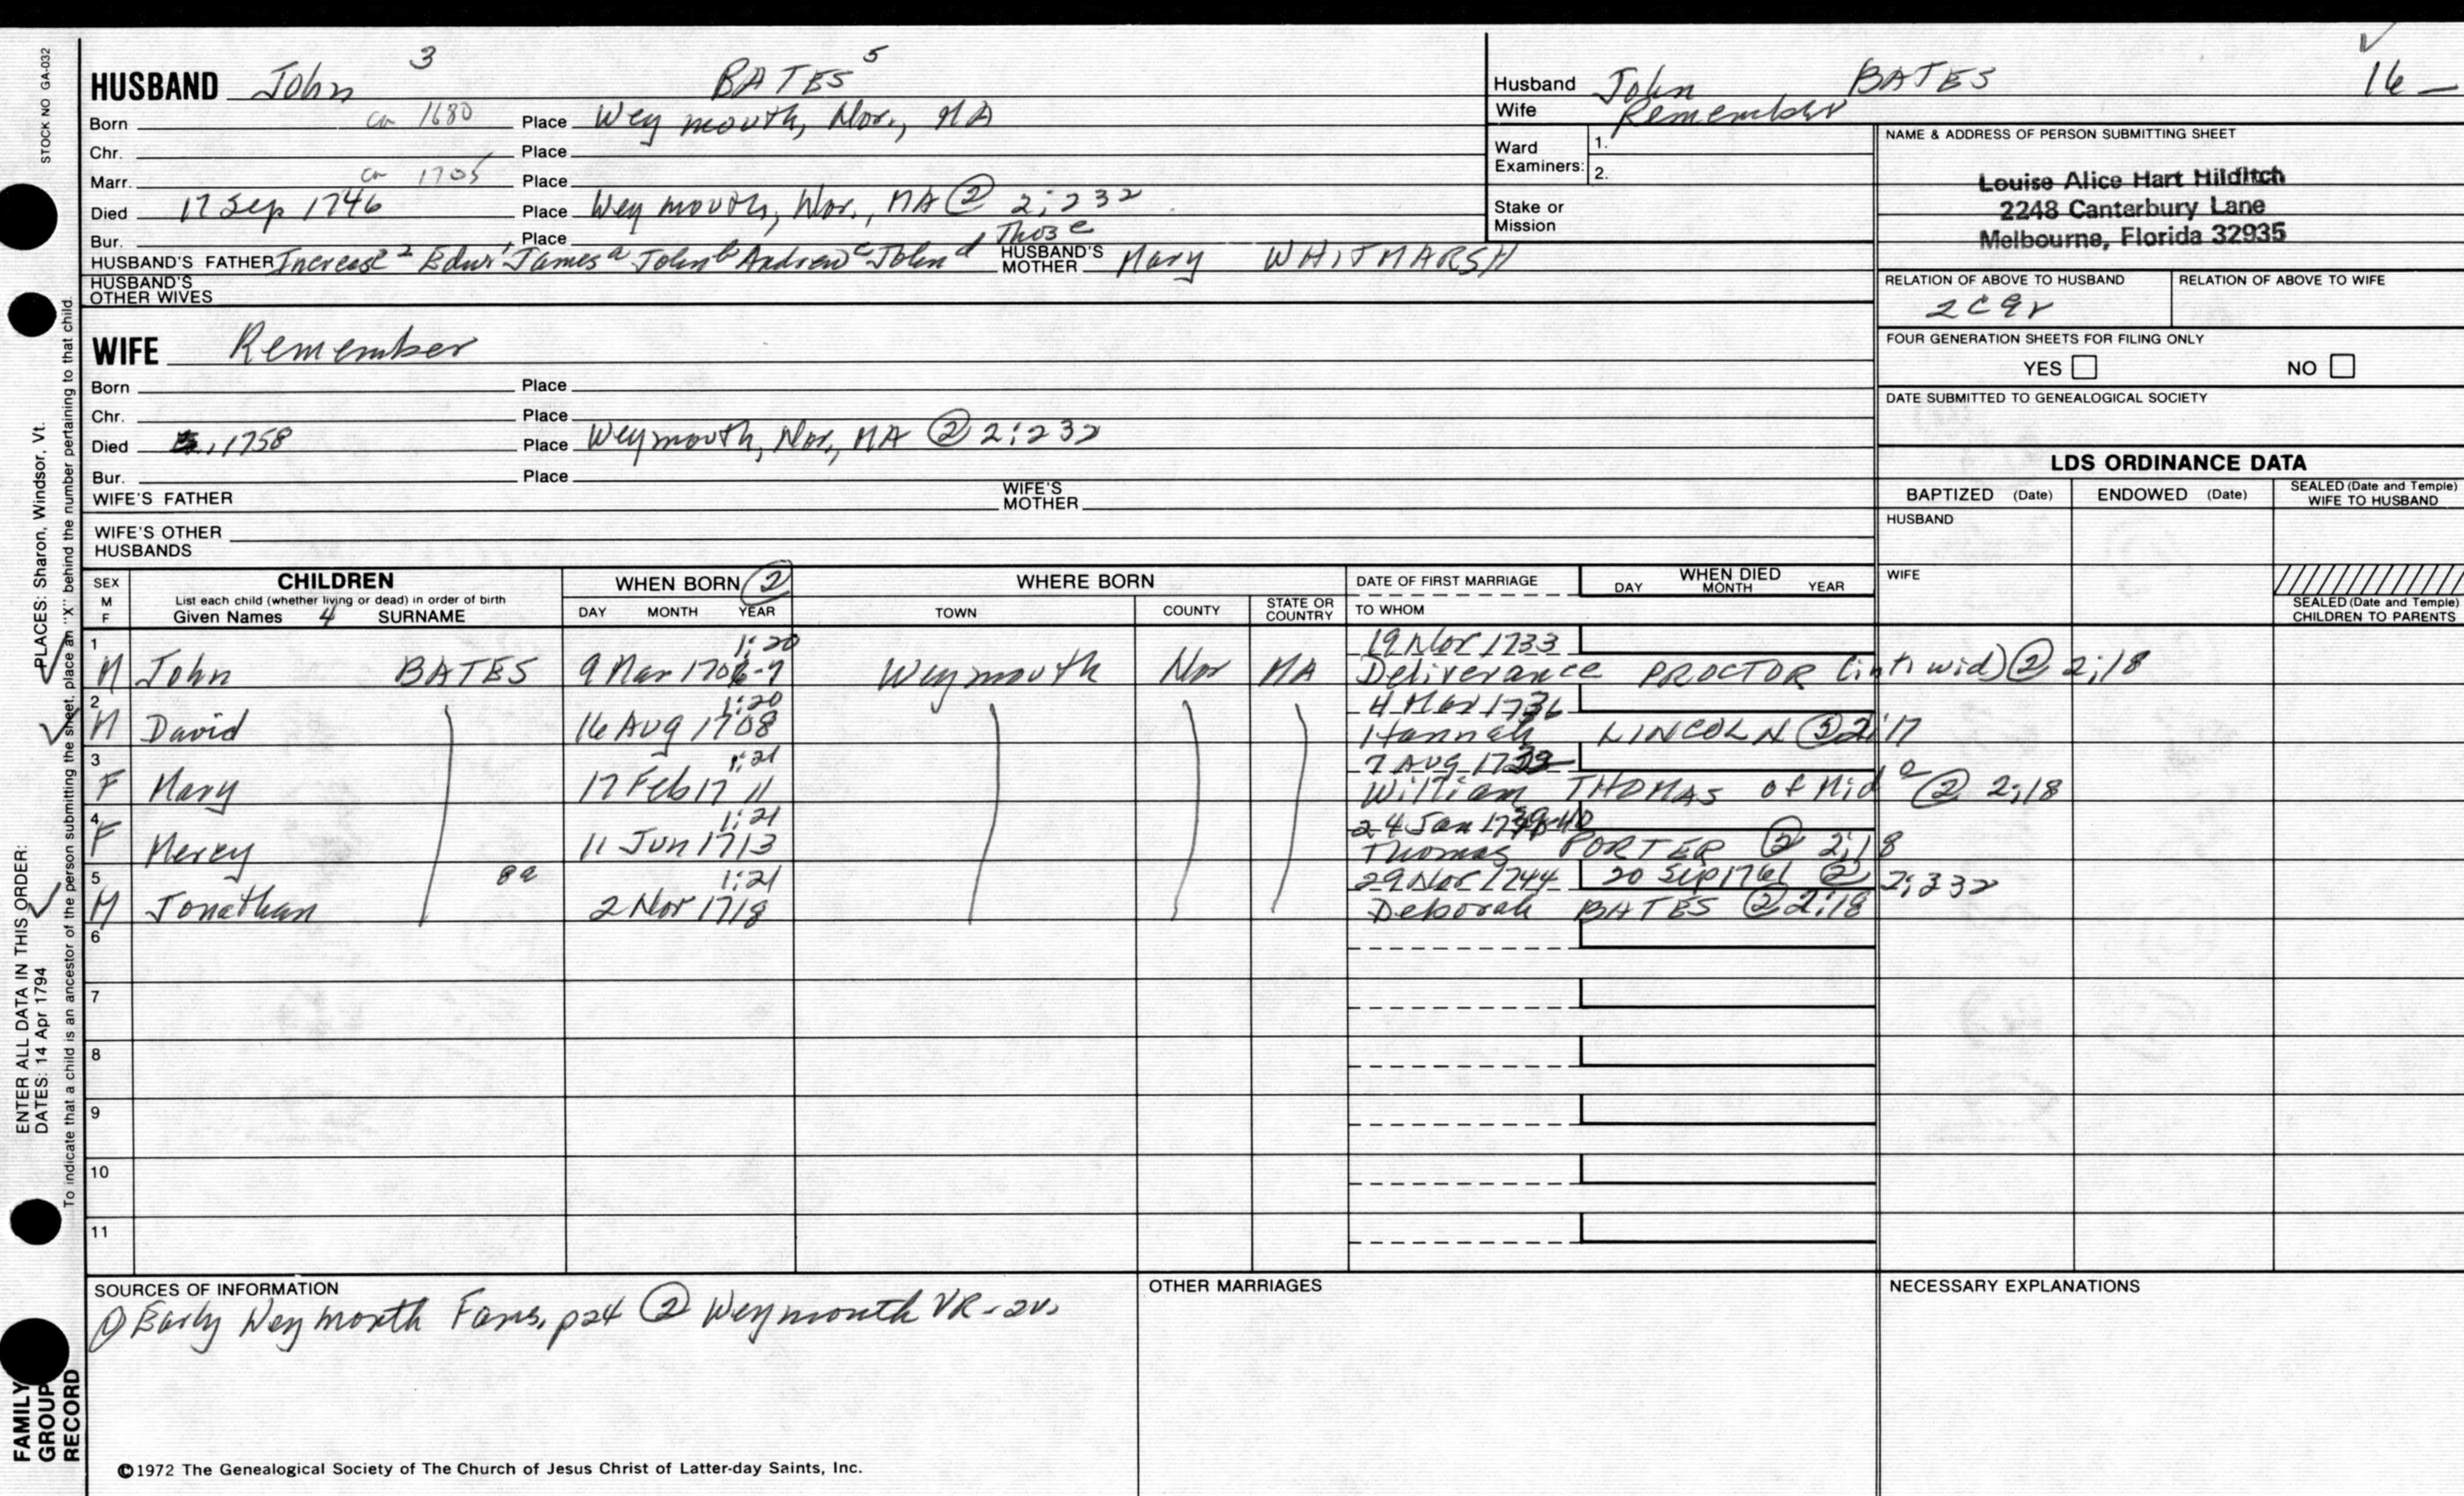 STOCK NO GA-032
HUSBAND John 3 BATES 5
Born ca 1680 Place Weymouth, Nor., MA
Chr. Place
Marr. ca 1705 Place
Died 17 Sep 1746 Place Weymouth, Nor., MA ② 2:232
Bur. Place
HUSBAND'S FATHER Increase 2 Edw 1 James a John b Andrew c John d Thos e HUSBAND'S MOTHER Mary WHITMARSH
HUSBAND'S OTHER WIVES
Husband John BATES 16 —
Wife Remember
Ward Examiners: 1.
2.
Stake or Mission
NAME & ADDRESS OF PERSON SUBMITTING SHEET
Louise Alice Hart Hilditch
2248 Canterbury Lane
Melbourne, Florida 32935
RELATION OF ABOVE TO HUSBAND RELATION OF ABOVE TO WIFE
2C9r
FOUR GENERATION SHEETS FOR FILING ONLY
YES NO
DATE SUBMITTED TO GENEALOGICAL SOCIETY
WIFE Remember
Born Place
Chr. Place
Died , 1758 Place Weymouth, Nor, MA ② 2:232
Bur. Place
WIFE'S FATHER WIFE'S MOTHER
WIFE'S OTHER HUSBANDS
LDS ORDINANCE DATA
BAPTIZED (Date) ENDOWED (Date) SEALED (Date and Temple) WIFE TO HUSBAND
HUSBAND
WIFE
SEALED (Date and Temple) CHILDREN TO PARENTS
SEX M F CHILDREN WHEN BORN ② WHERE BORN DATE OF FIRST MARRIAGE WHEN DIED
List each child (whether living or dead) in order of birth
Given Names 4 SURNAME DAY MONTH YEAR TOWN COUNTY STATE OR COUNTRY TO WHOM DAY MONTH YEAR
1 1:20 19 Nov 1733
M John BATES 9 Mar 1706-7 Weymouth Nor MA Deliverance PROCTOR (int, wid) ② 2:18
2 1:20 4 Mar 1736
M David 16 Aug 1708 Hannah LINCOLN ② 2:17
3 1:21 7 Aug 1733
F Mary 17 Feb 1711 William THOMAS of Mid a ② 2:18
4 1:21 24 Jan 1739-40
F Mercy 11 Jun 1713 Thomas PORTER ② 2:18
5 8a 1:21 29 Nov 1744 20 Sep 1761 ② 2:232
M Jonathan 2 Nov 1718 Deborah BATES ② 2:18
6
7
8
9
10
11
SOURCES OF INFORMATION
① Early Weymouth Fams, p24 ② Weymouth VR-2v.
OTHER MARRIAGES
NECESSARY EXPLANATIONS
©1972 The Genealogical Society of The Church of Jesus Christ of Latter-day Saints, Inc.
ENTER ALL DATA IN THIS ORDER:
DATES: 14 Apr 1794 PLACES: Sharon, Windsor, Vt.
To indicate that a child is an ancestor of the person submitting the sheet, place an "X" behind the number pertaining to that child.
FAMILY GROUP RECORD